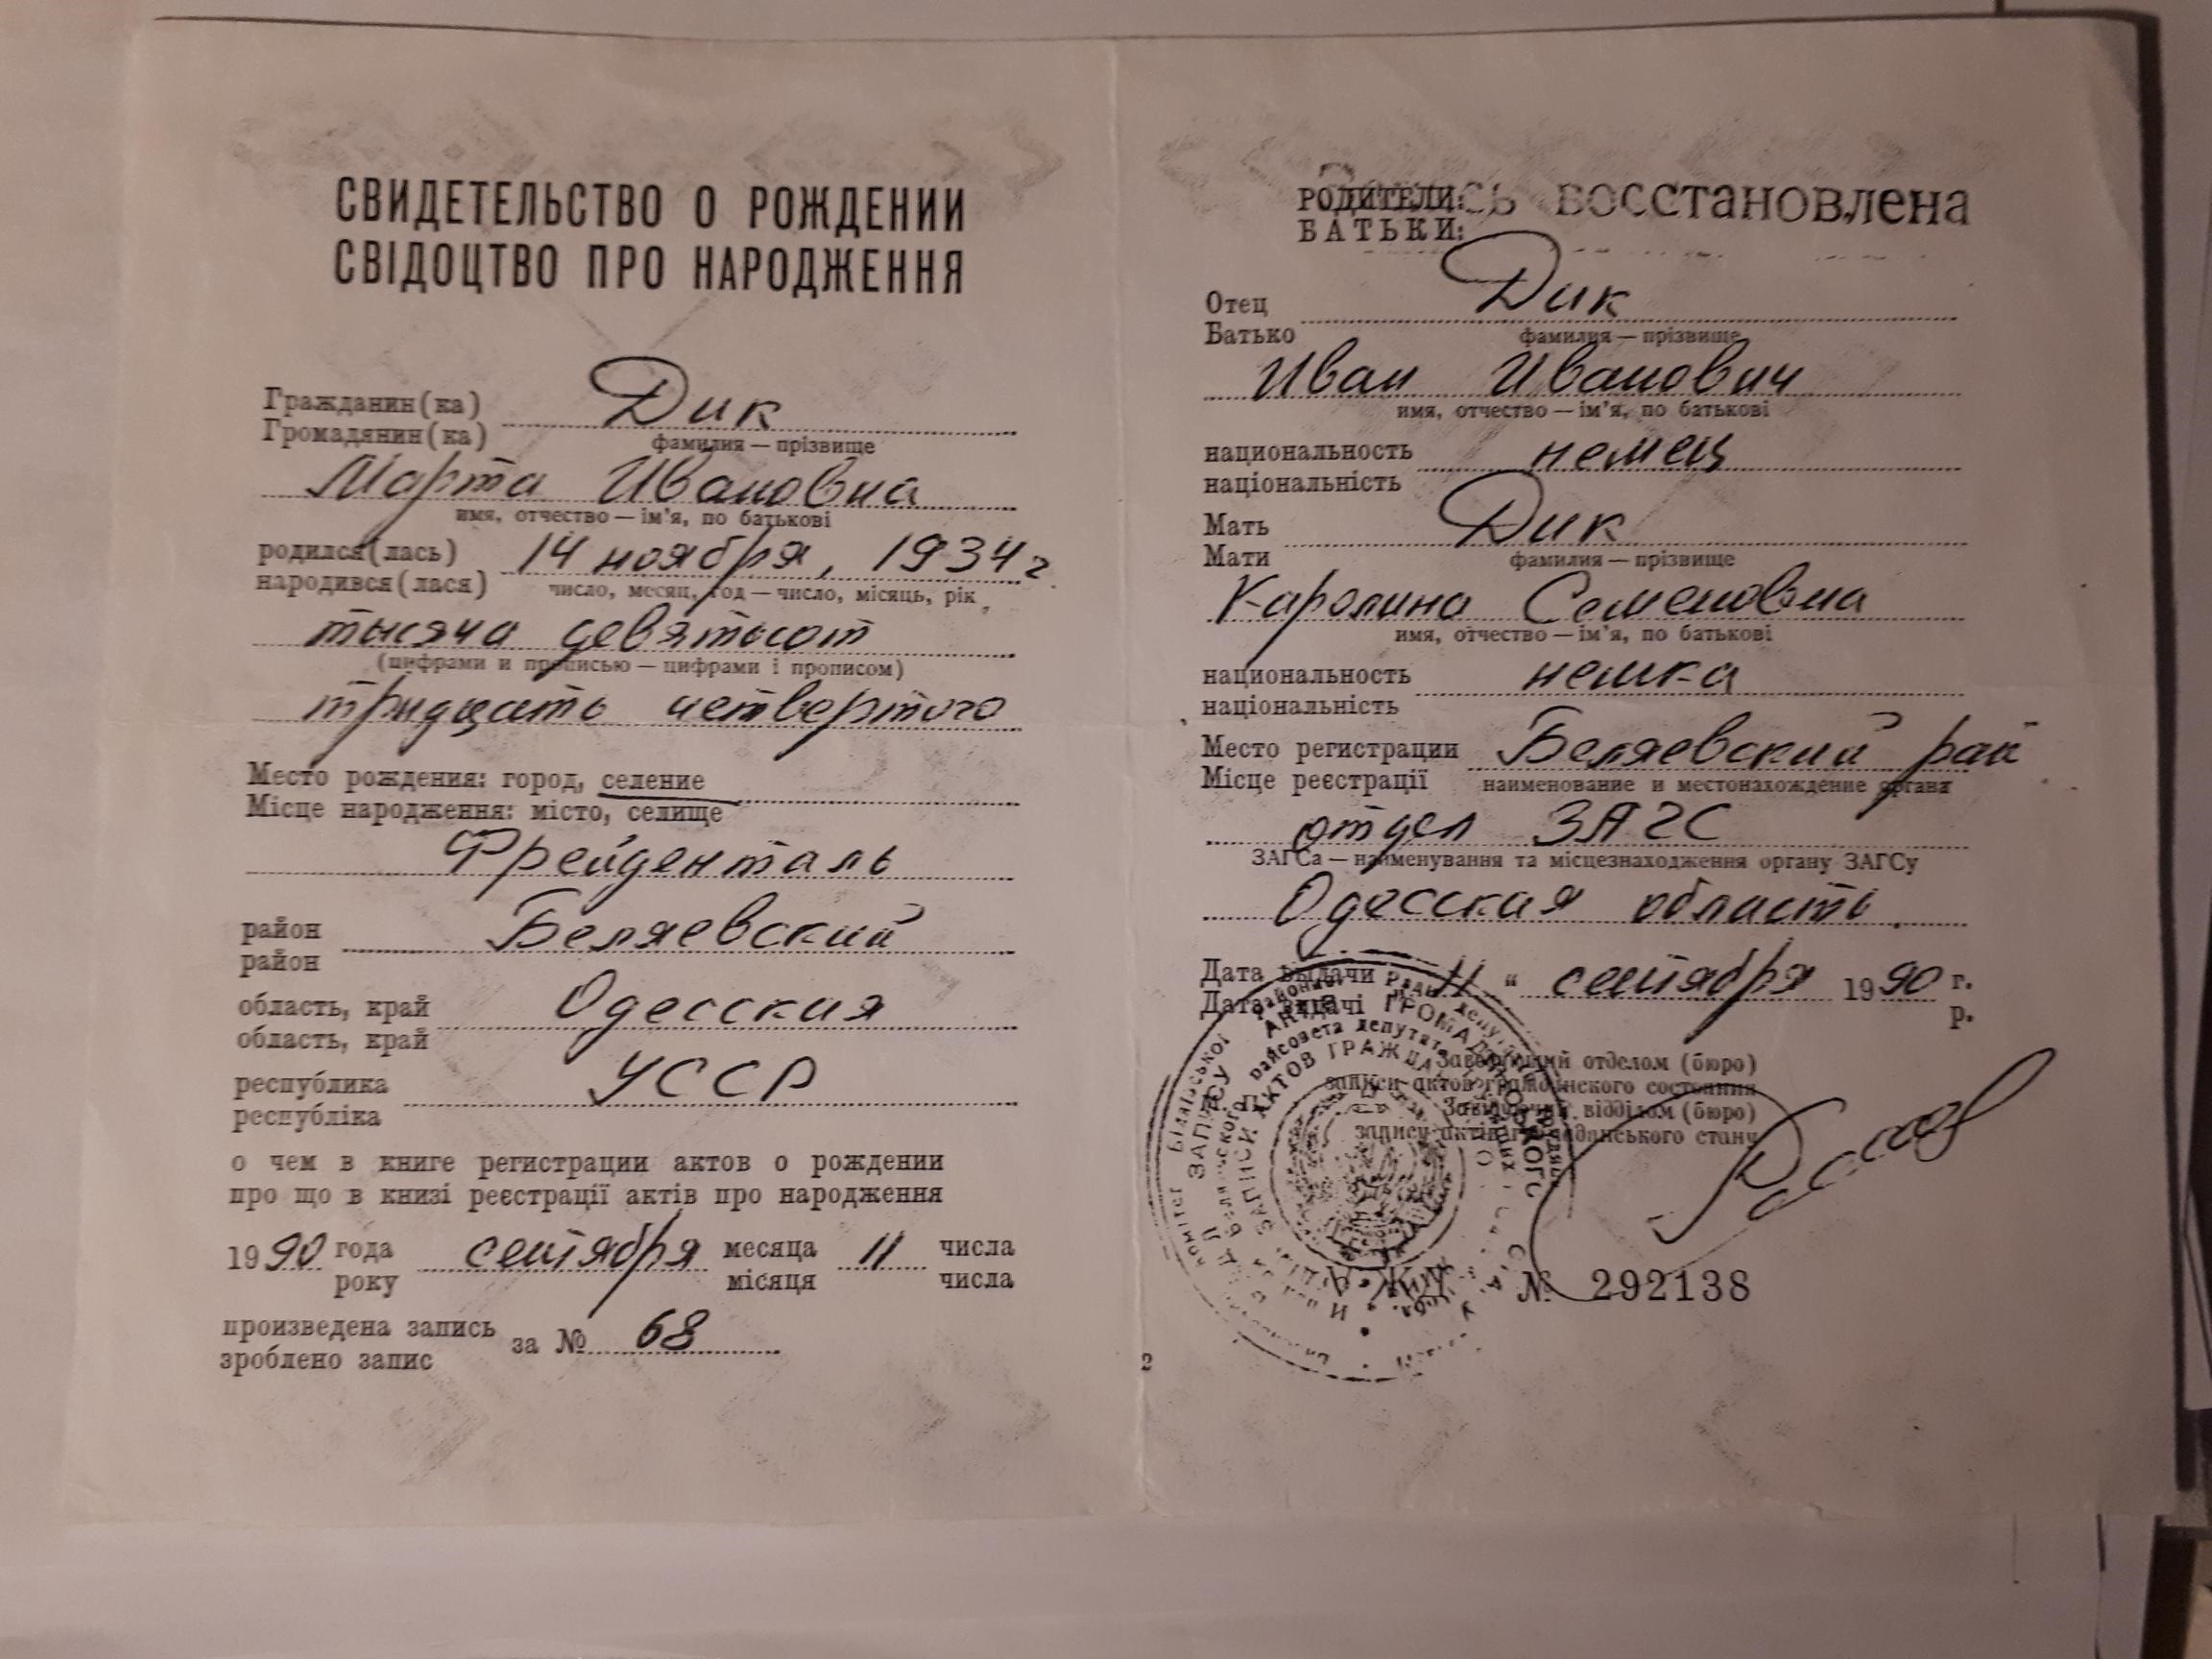 СВИДЕТЕЛЬСТВО О РОЖДЕНИИ
СВІДОЦТВО ПРО НАРОДЖЕННЯ
Гражданин(ка) Дик
Громадянин(ка) фамилия — прізвище
Марта Ивановна
имя, отчество — ім'я, по батькові
родился(лась) 14 ноября, 1934 г.
народився(лася) число, месяц, год — число, місяць, рік
тысяча девятьсот
(цифрами и прописью — цифрами і прописом)
тридцать четвертого
Место рождения: город, селение
Місце народження: місто, селище
Фрейденталь
район Беляевский
район
область, край Одесская
область, край
республика УССР
республіка
о чем в книге регистрации актов о рождении
про що в книзі реєстрації актів про народження
1990 года сентября месяца 11 числа
року місяця числа
произведена запись за № 68
зроблено запис
РОДИТЕЛИ: восстановлена
БАТЬКИ:
Отец Дик
Батько фамилия — прізвище
Иван Иванович
имя, отчество — ім'я, по батькові
национальность немец
національність
Мать Дик
Мати фамилия — прізвище
Каролина Семеновна
имя, отчество — ім'я, по батькові
национальность немка
національність
Место регистрации Беляевский рай
Місце реєстрації наименование и местонахождение органа
отдел ЗАГС
ЗАГСа — найменування та місцезнаходження органу ЗАГСу
Одесская область
Дата выдачи 11 " сентября 1990 г.
Дата видачі р.
Заведующий отделом (бюро)
записи актов гражданского состояния
Завідуючий відділом (бюро)
запису актів громаданського стану
№ 292138
2